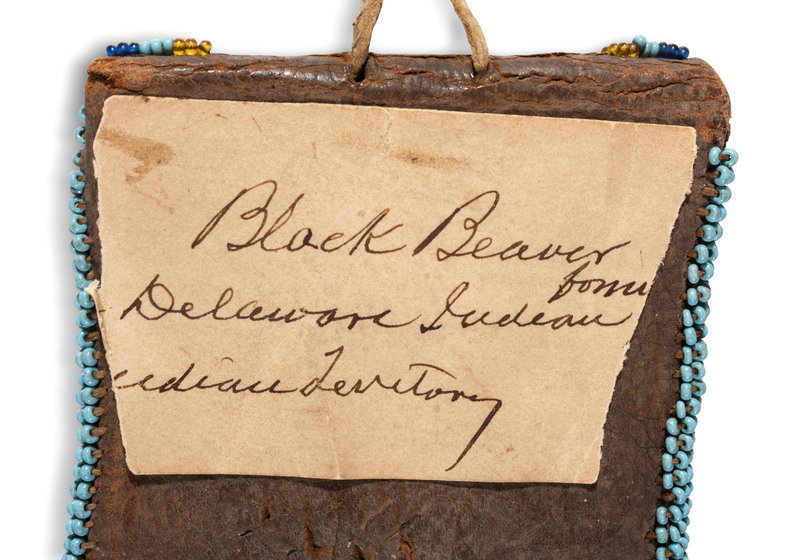 Black Beaver
Delaware Indian
ndian Territory